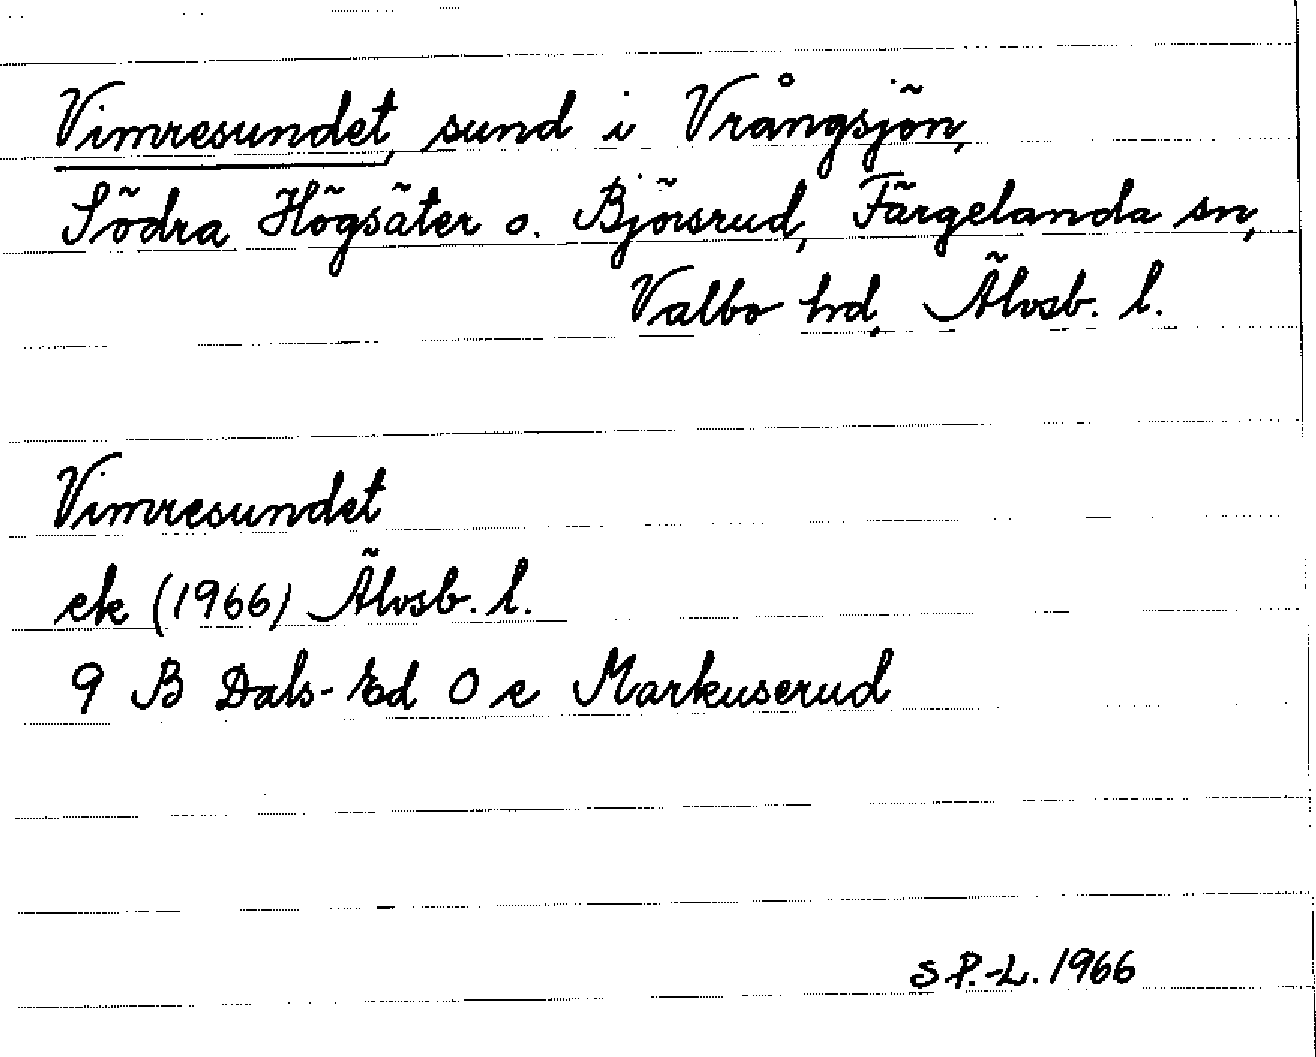 Vimresundet, sund i Vrångsjön,
Södra Högsäter o. Björsrud, Färgelanda sn,
Valbo hd, Älvsb. l.
Vimresundet
ek (1966) Älvsb. l.
9 B Dals-Ed 0 e Markuserud
S P.-L. 1966